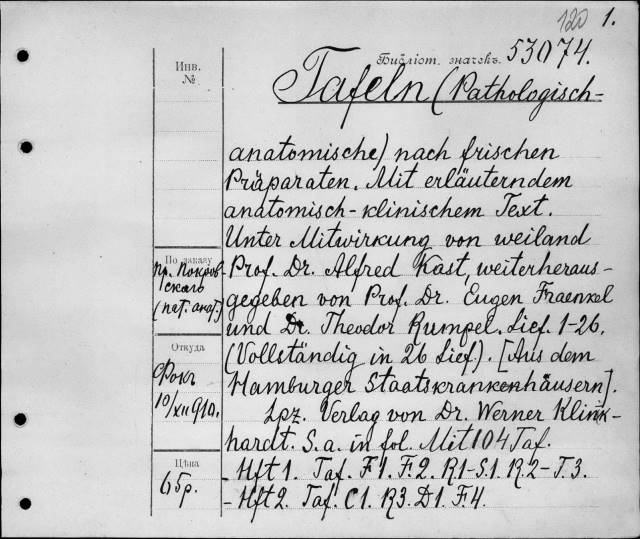 120 1.
Библіот. значекъ. 53074.
Инв.
№
Tafeln (Pathologisch-
anatomische) nach frischen
Präparaten. Mit erläuterndem
anatomisch-klinischem Text.
Unter Mitwirkung von weiland
По заказу
Пр. Покров-
скаго
(пат. анат.)
Prof. Dr. Alfred Kast, weiterheraus-
gegeben von Prof. Dr. Eugen Fraenkel
und Dr. Theodor Rumpel. Lief. 1-26.
Откуда
Фокъ
10/XII 910.
(Vollständig in 26 Lief.). [Aus dem
Hamburger Staatskrankenhäusern].
Lpz. Verlag von Dr. Werner Klink-
hardt. S. a. in fol. Mit 104 Taf.
Цѣна
65р.
- Hft 1. Taf. F. 1. F. 2. R1-S.1. R.2-T.3.
- Hft 2. Taf. C1. R3. D1. F.4.